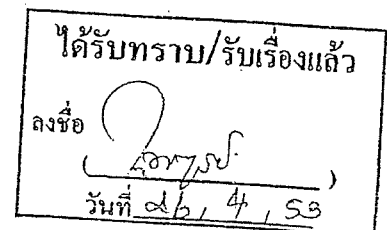 ได้รับทราบ/รับเรื่องแล้ว
ลงชื่อ
( )
วันที่ ๑๖ / 4 / 53